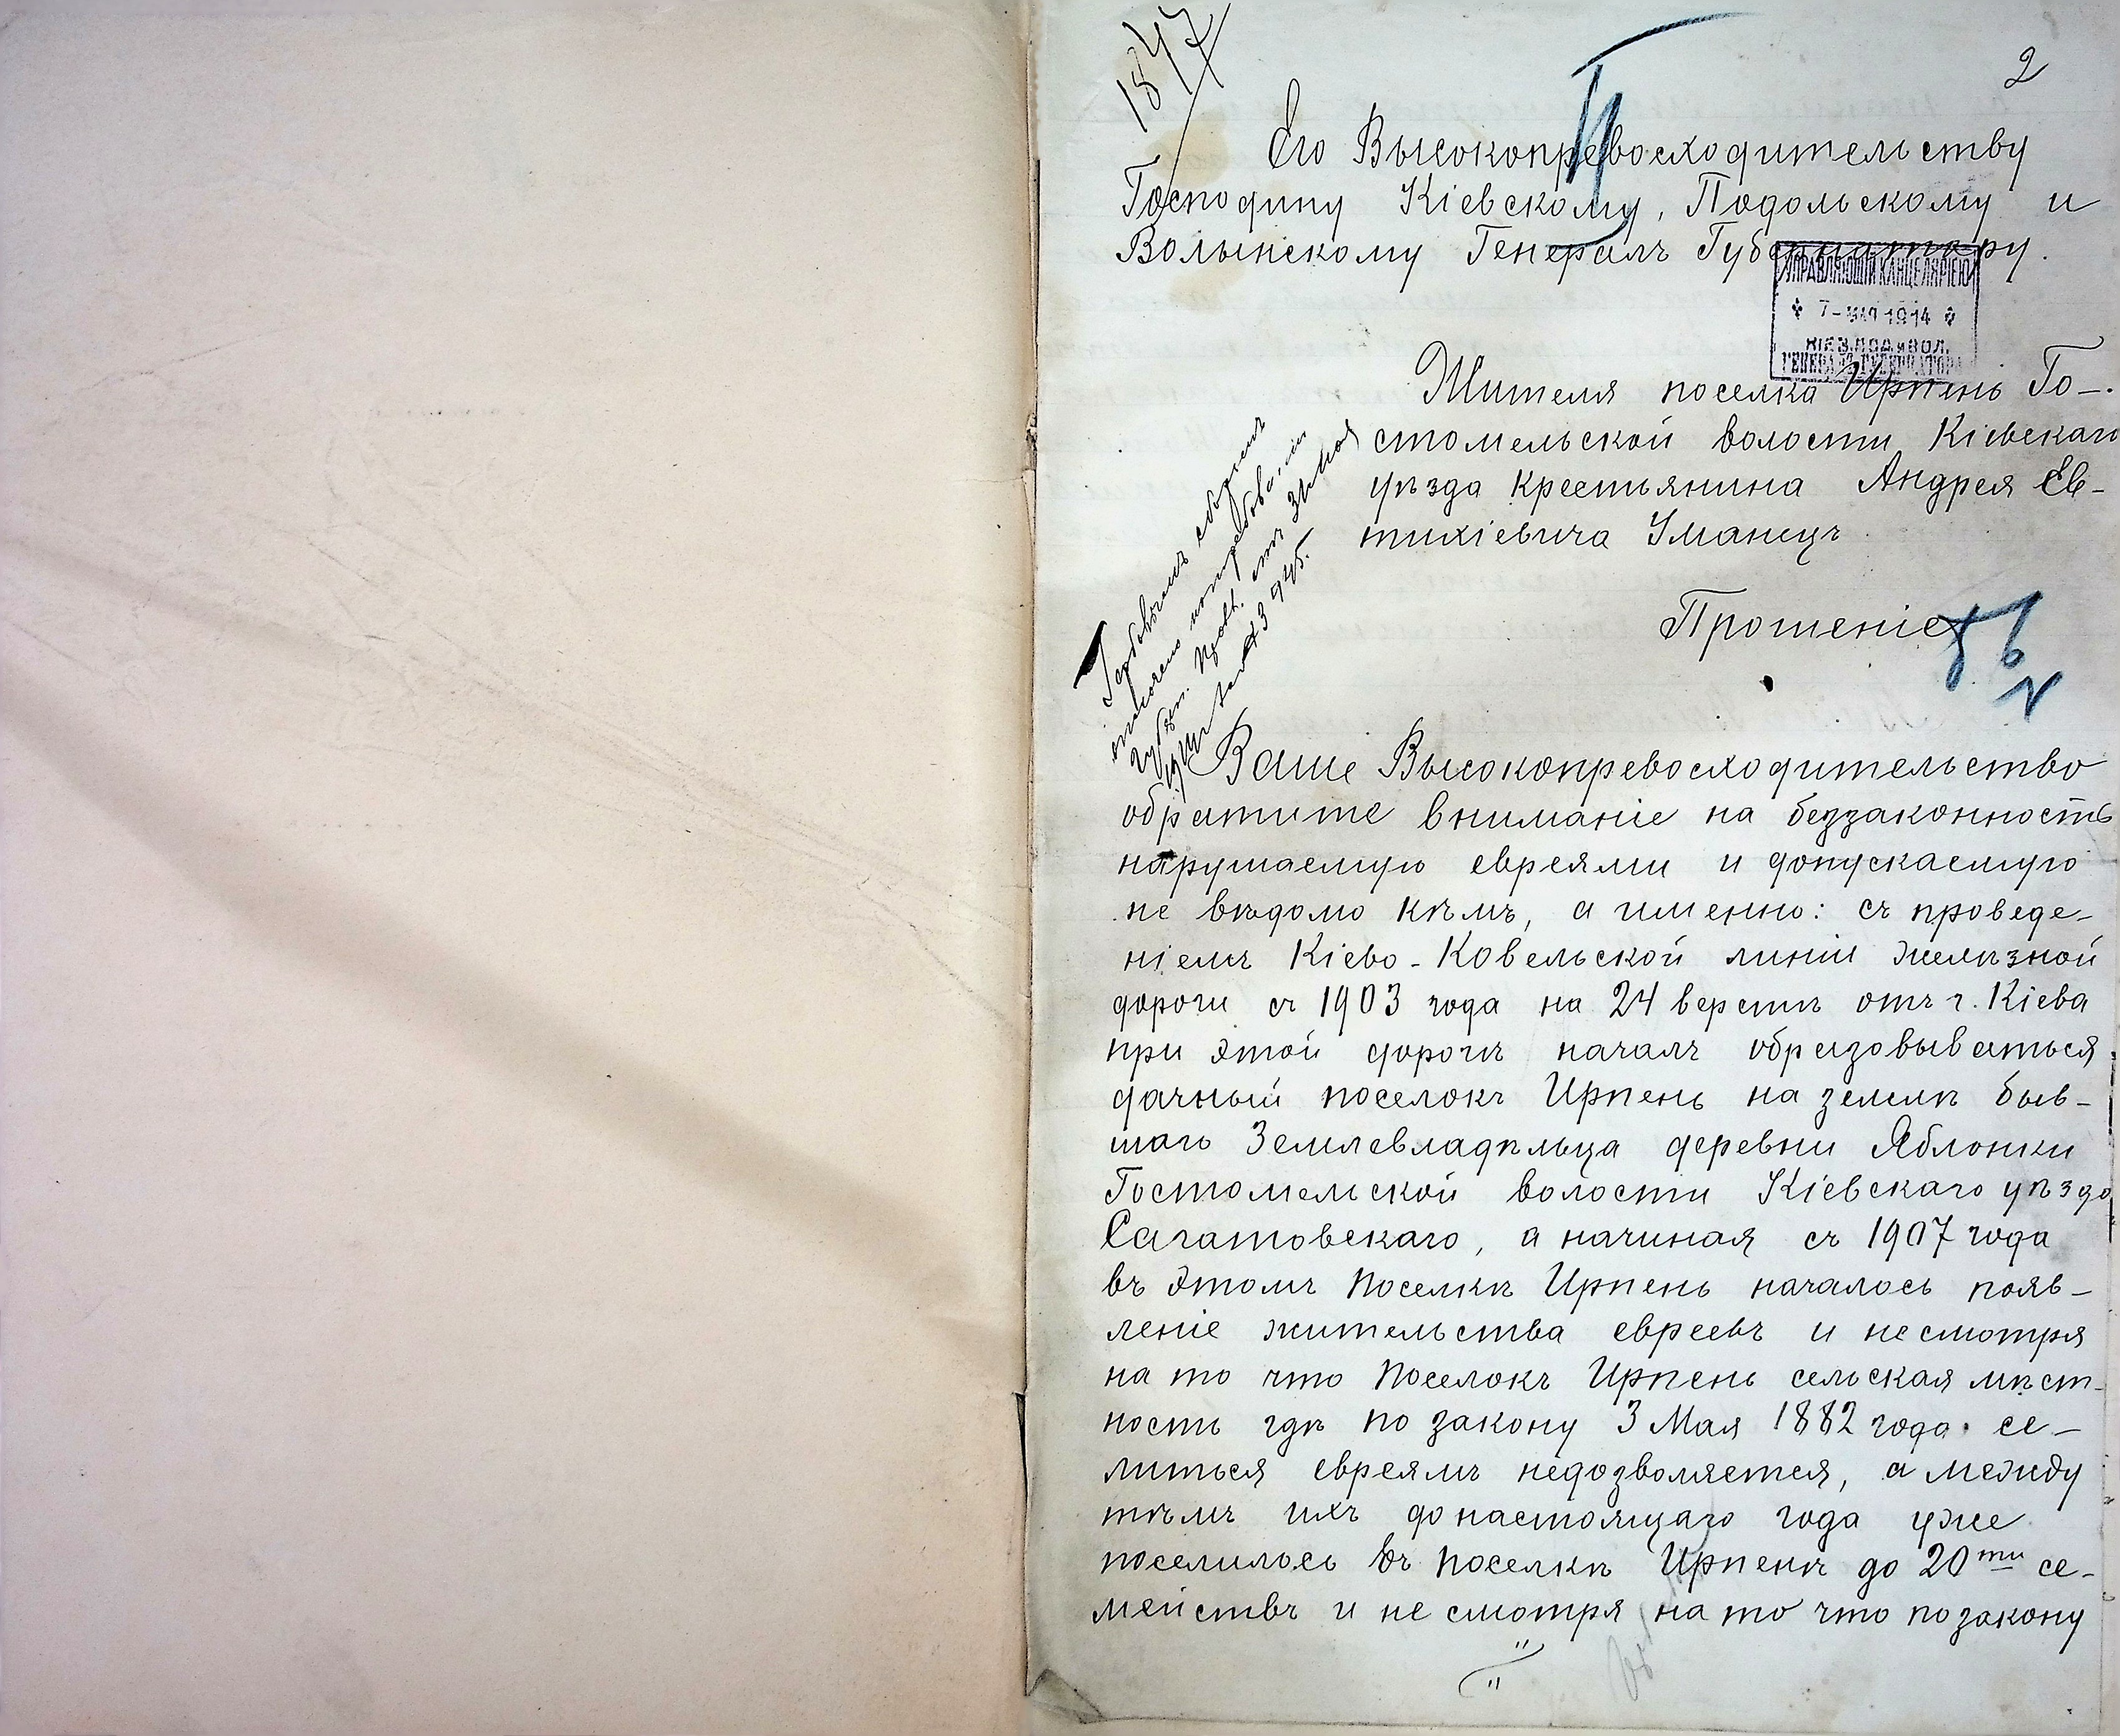 1847
2
Его Высокопревосходительству
Господину Кіевскому, Подольскому и
Волынскому Генералъ Губернатору.
УПРАВЛЯЮЩІЙ КАНЦЕЛЯРІЕЮ
7 - МАЯ 1914
КІЕВ. ПОД. и ВОЛ.
ГЕНЕРАЛЪ-ГУБЕРНАТОРА
Жителя поселка Ирпень Го-
стомельской волости Кіевскаго
уѣзда Крестьянина Андрея Ев-
тихіевича Уманецъ
Прошеніе
Гербовымъ сборомъ
Ваше Высокопревосходительство
обратите вниманіе на беззаконность
нарушаемую евреями и допускаемую
не вѣдомо кѣмъ, а именно: съ проведе-
ніемъ Кіево-Ковельской линіи желѣзной
дороги съ 1903 года на 24 верстѣ отъ г. Кіева
при этой дорогѣ началъ образовываться
дачный поселокъ Ирпень на землѣ быв-
шаго Землевладѣльца деревни Яблонки
Гостомельской волости Кіевскаго уѣзда
Сагатовскаго, а начиная съ 1907 года
въ этомъ поселкѣ Ирпень началось появ-
леніе жительства евреевъ и не смотря
на то что поселокъ Ирпень сельская мѣст-
ность гдѣ по закону 3 Мая 1882 года се-
литься евреямъ недозволяется, а между
тѣмъ ихъ до настоящаго года уже
поселилось въ поселкѣ Ирпенѣ до 20ти се-
мействъ и не смотря на то что по закону